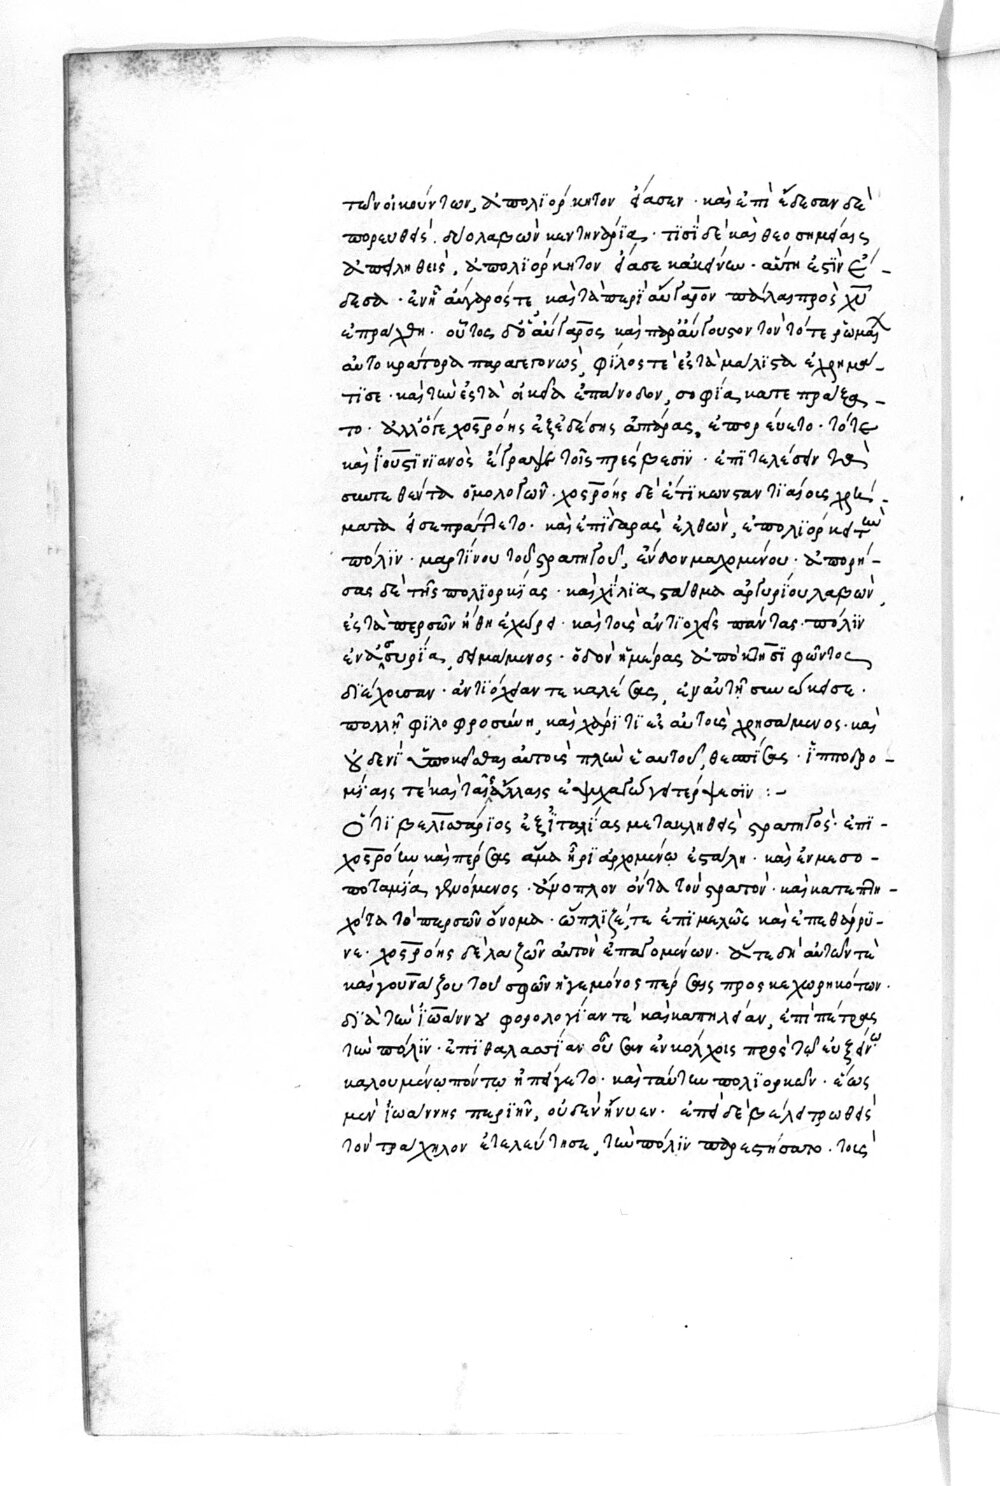 τῶν οἰκούντων, ἀπολϊόρκητον εἴασεν· καὶ ἐπὶ ἔδεσαν δὲ
πορευθεὶς, δύο λαβὼν κεντηνάρια· τισὶ δὲ καὶ θεοσημείαις
ἀπειληθεὶς, ἀπολϊόρκητον εἴασε κἀκείνην· αὕτη ἐστὶν ἔ-
δεσα· ἐν ᾗ αὔγαρός τε καὶ τὰ περὶ αὔγαρον πάλαι πρὸς χν
ἐπράχθη· οὗτος δὲ ὁ αὔγαρος καὶ παρ' αὔγουστον τὸν τότε ῥωμαι
αὐτοκράτορα παραγεγονὼς, φίλος τε ἐς τὰ μάλιστα ἐχρημά-
τισε· καὶ τὴν ἐς τὰ οἰκεῖα ἐπάνοδον, σοφίᾳ κατεπράξα-
το· ἀλλ' ὅτε χοσρόης ἐξ ἐδέσης ἀπάρας, ἐπορεύετο· τότε
καὶ ἰουστινιανὸς ἔγραψε τοῖς πρέσβεσιν· ἐπιτελέσειν τὰ
συντεθέντα ὁμολογῶν· χοσρόης δὲ ἔτι κωνσταντιαίοις χρή-
ματα εἰσεπράττετο· καὶ ἐπὶ δαρὰς ἐλθὼν, ἐπολϊόρκει τὴν
πόλιν· μαρτίνου τοῦ στρατηγοῦ, ἔνδον μαχομένου· ἀπορή-
σας δὲ τῆς πολιορκίας· καὶ χίλια σταθμὰ ἀργυρίου λαβὼν,
ἐς τὰ περσῶν ἤθη ἐχώρει· καὶ τοῖς ἀντιοχεῦσι πάντας· πόλιν
ἐν ἀσσυρίᾳ, δειμάμενος· ὁδὸν ἡμέρας ἀπὸ κτησιφῶντος
διέχουσαν· ἀντιόχειάν τε καλέσας, ἐν αὐτῇ συνῴκησε·
πολλῇ φιλοφροσύνῃ, καὶ χάριτι ἐς αὐτοὺς χρησάμενος· καὶ
οὐδενὶ ὑποκεῖσθαι αὐτοὺς πλὴν ἑαυτοῦ, θεσπίσας· ἱπποδρο-
μίαις τε καὶ ταῖς ἄλλαις ἐψυχαγώγει τέρψεσιν :-
Ὅτι βελισάριος ἐξ ἰταλίας μετακληθεὶς στρατηγὸς· ἐπὶ
χοσρόην καὶ πέρσας ἅμα ἦρι ἀρχομένῳ ἐστάλη· καὶ ἐν μεσο-
ποταμίᾳ γενόμενος· ἄνοπλον ὄντα τὸν στρατὸν· καὶ κατεπτη-
χότα τὸ περσῶν ὄνομα· ὥπλιζέ, τε ἐπιμελῶς καὶ ἐπεθάρρυ-
νε· χοσρόης δὲ λαζῶν αὐτὸν ἐπαγομένων· ἅτε δὴ αὐτῶν τε
καὶ γουβάζου τοῦ σφῶν ἡγεμόνος πέρσαις προσκεχωρηκότων·
διὰ τὴν ἰωάννου φορολογίαν τε καὶ καπηλείαν, ἐπὶ πέτρας
τὴν πόλιν· ἐπιθαλασσίαν οὖσαν ἐν κόλχοις πρὸς τῷ εὐξείνῳ
καλουμένῳ πόντῳ ἠπείγετο· καὶ ταύτην πολιορκῶν· ἕως
μὲν ἰωάννης περιῆν, οὐδὲν ἤνυεν· ἐπεὶ δὲ βέλει τρωθεὶς
τὸν τράχηλον ἐτελεύτησε, τὴν πόλιν παρεστήσατο· τοῖς